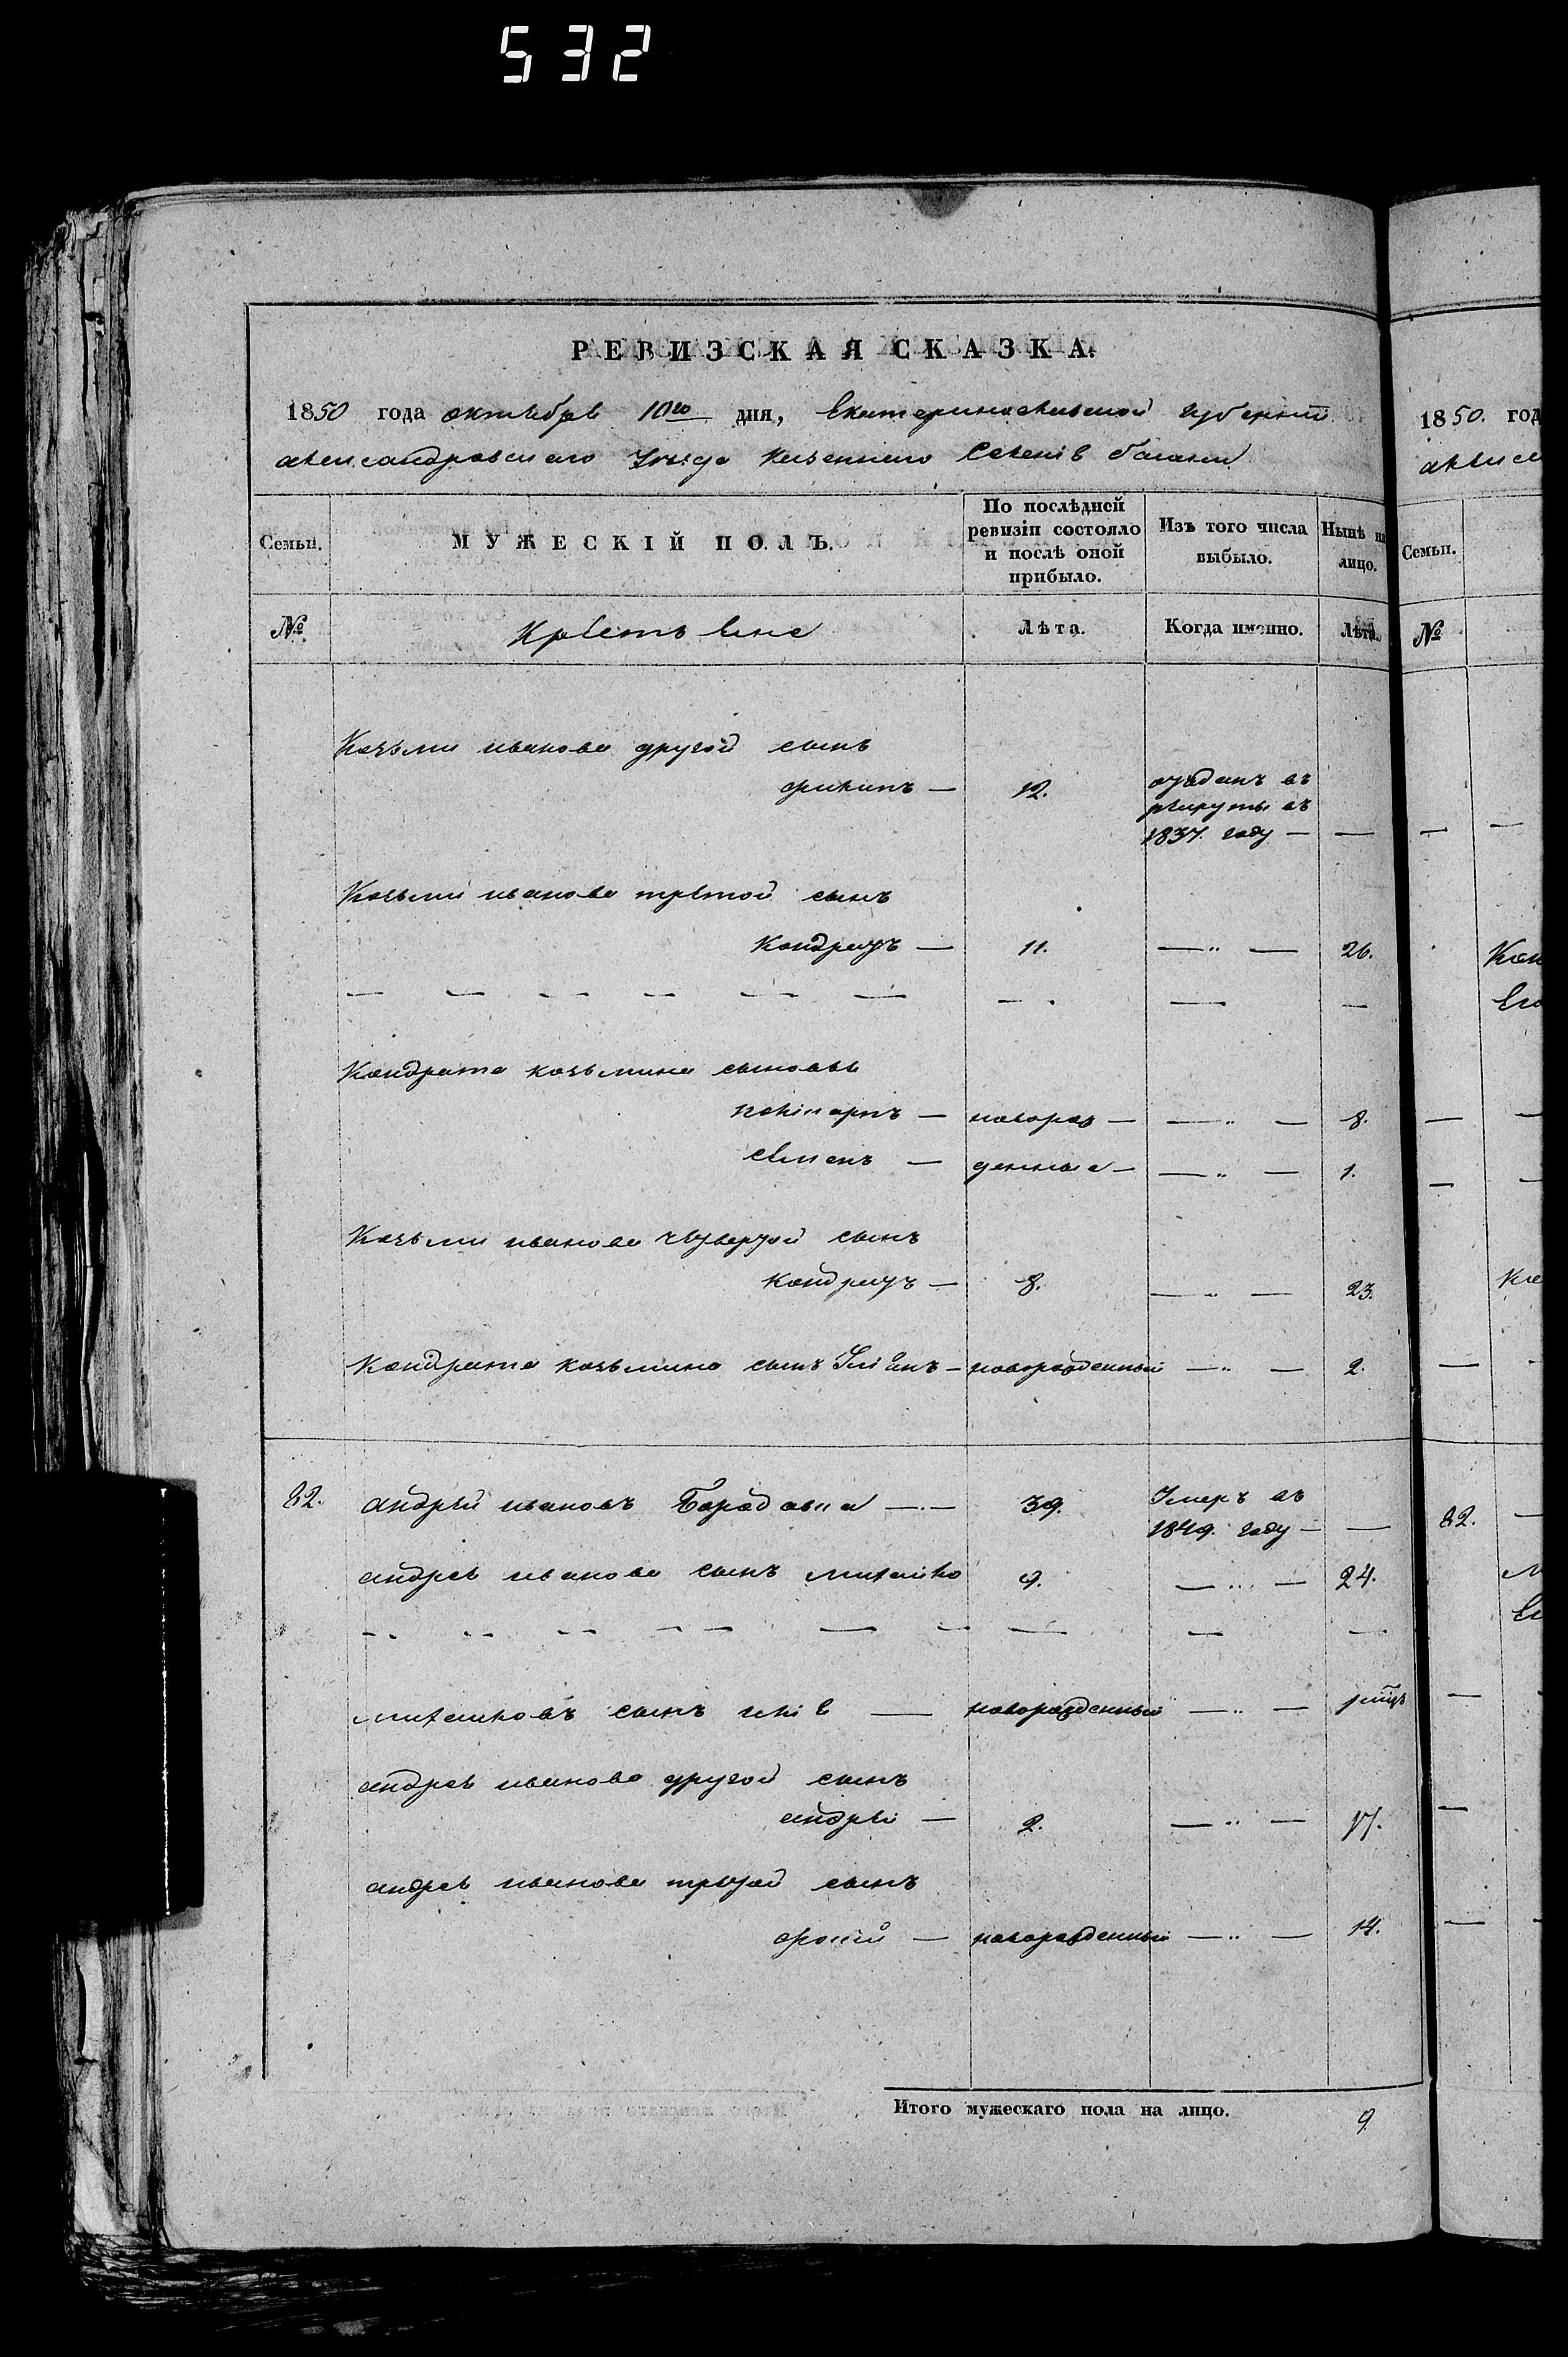 532
РЕВИЗСКАЯ СКАЗКА.
1850 года октября 10го дня, Екатеринославской губернии
александровского уезда казенного Селенія
Семьи. МУЖЕСКІЙ ПОЛЪ. По послѣдней ревизіи состояло и послѣ оной прибыло. Изъ того числа выбыло. Нынѣ на лицо.
№ Крестьяне Лѣта. Когда именно. Лѣта.
Козьми иванова другой сынъ
филипъ — 12. отданъ въ
рекруты въ
1837. году — —
Козьми иванова третой сынъ
Кондратъ — 11. — „ — 26.
Кондрата козьмина сыновья
поликарпъ — новорож — — „ — 8.
семенъ — денные — — „ — 1.
Козьми иванова четвертой сынъ
Кондратъ — 8. — „ — 23.
Кондрата козьмина сынъ — новорожденный — „ — 2.
82. андрей ивановъ Бородавка — 39. Умеръ въ
1849. году — —
андрея иванова сынъ михайло 9. — „ — 24.
михайловъ сынъ илія — новорожденный — „ —
андрея иванова другой сынъ
андрей — 2. — „ — 17.
андрея иванова третой сынъ
— новорожденный — „ — 14.
Итого мужескаго пола на лицо. 9
1850. год
Семьи.
№
Кон
Его
82.